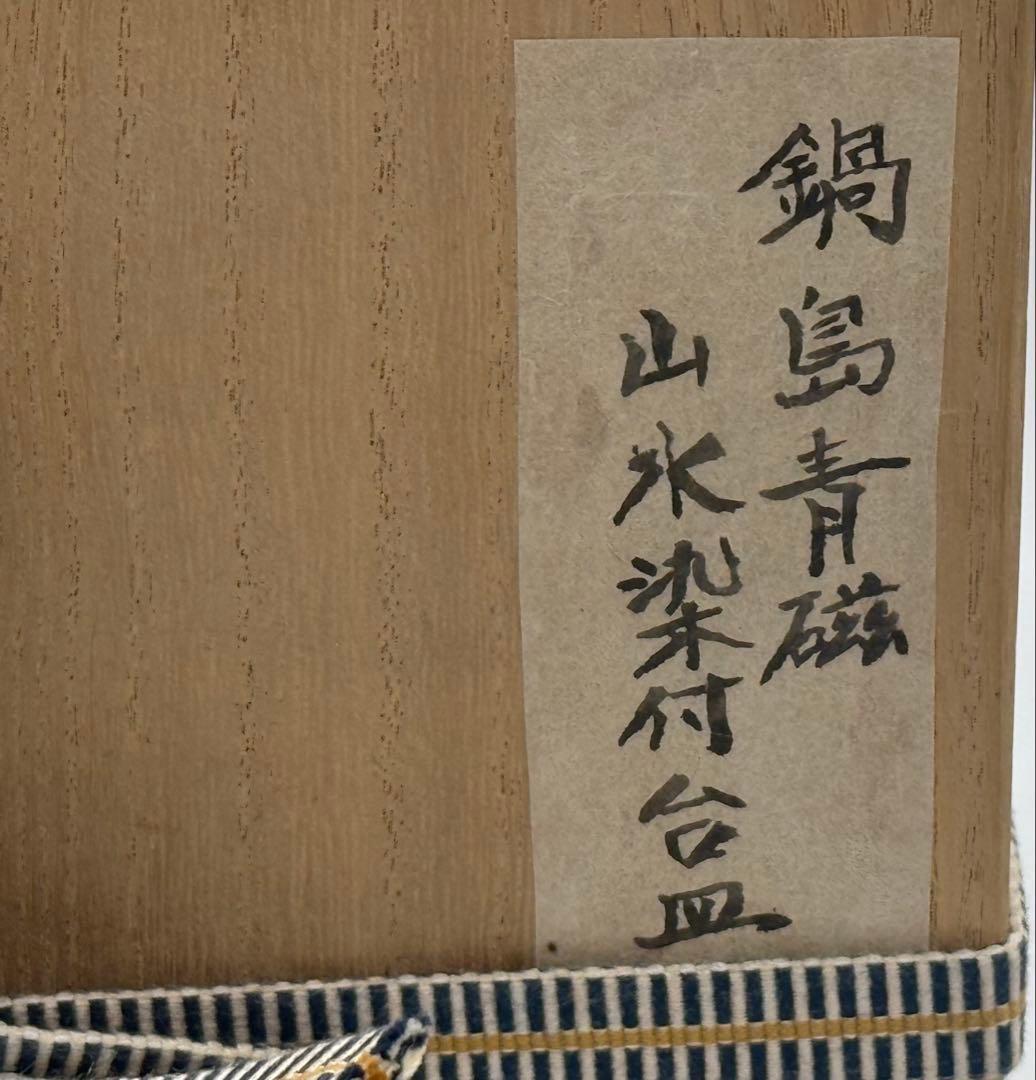 鍋島青磁
山水染付台皿